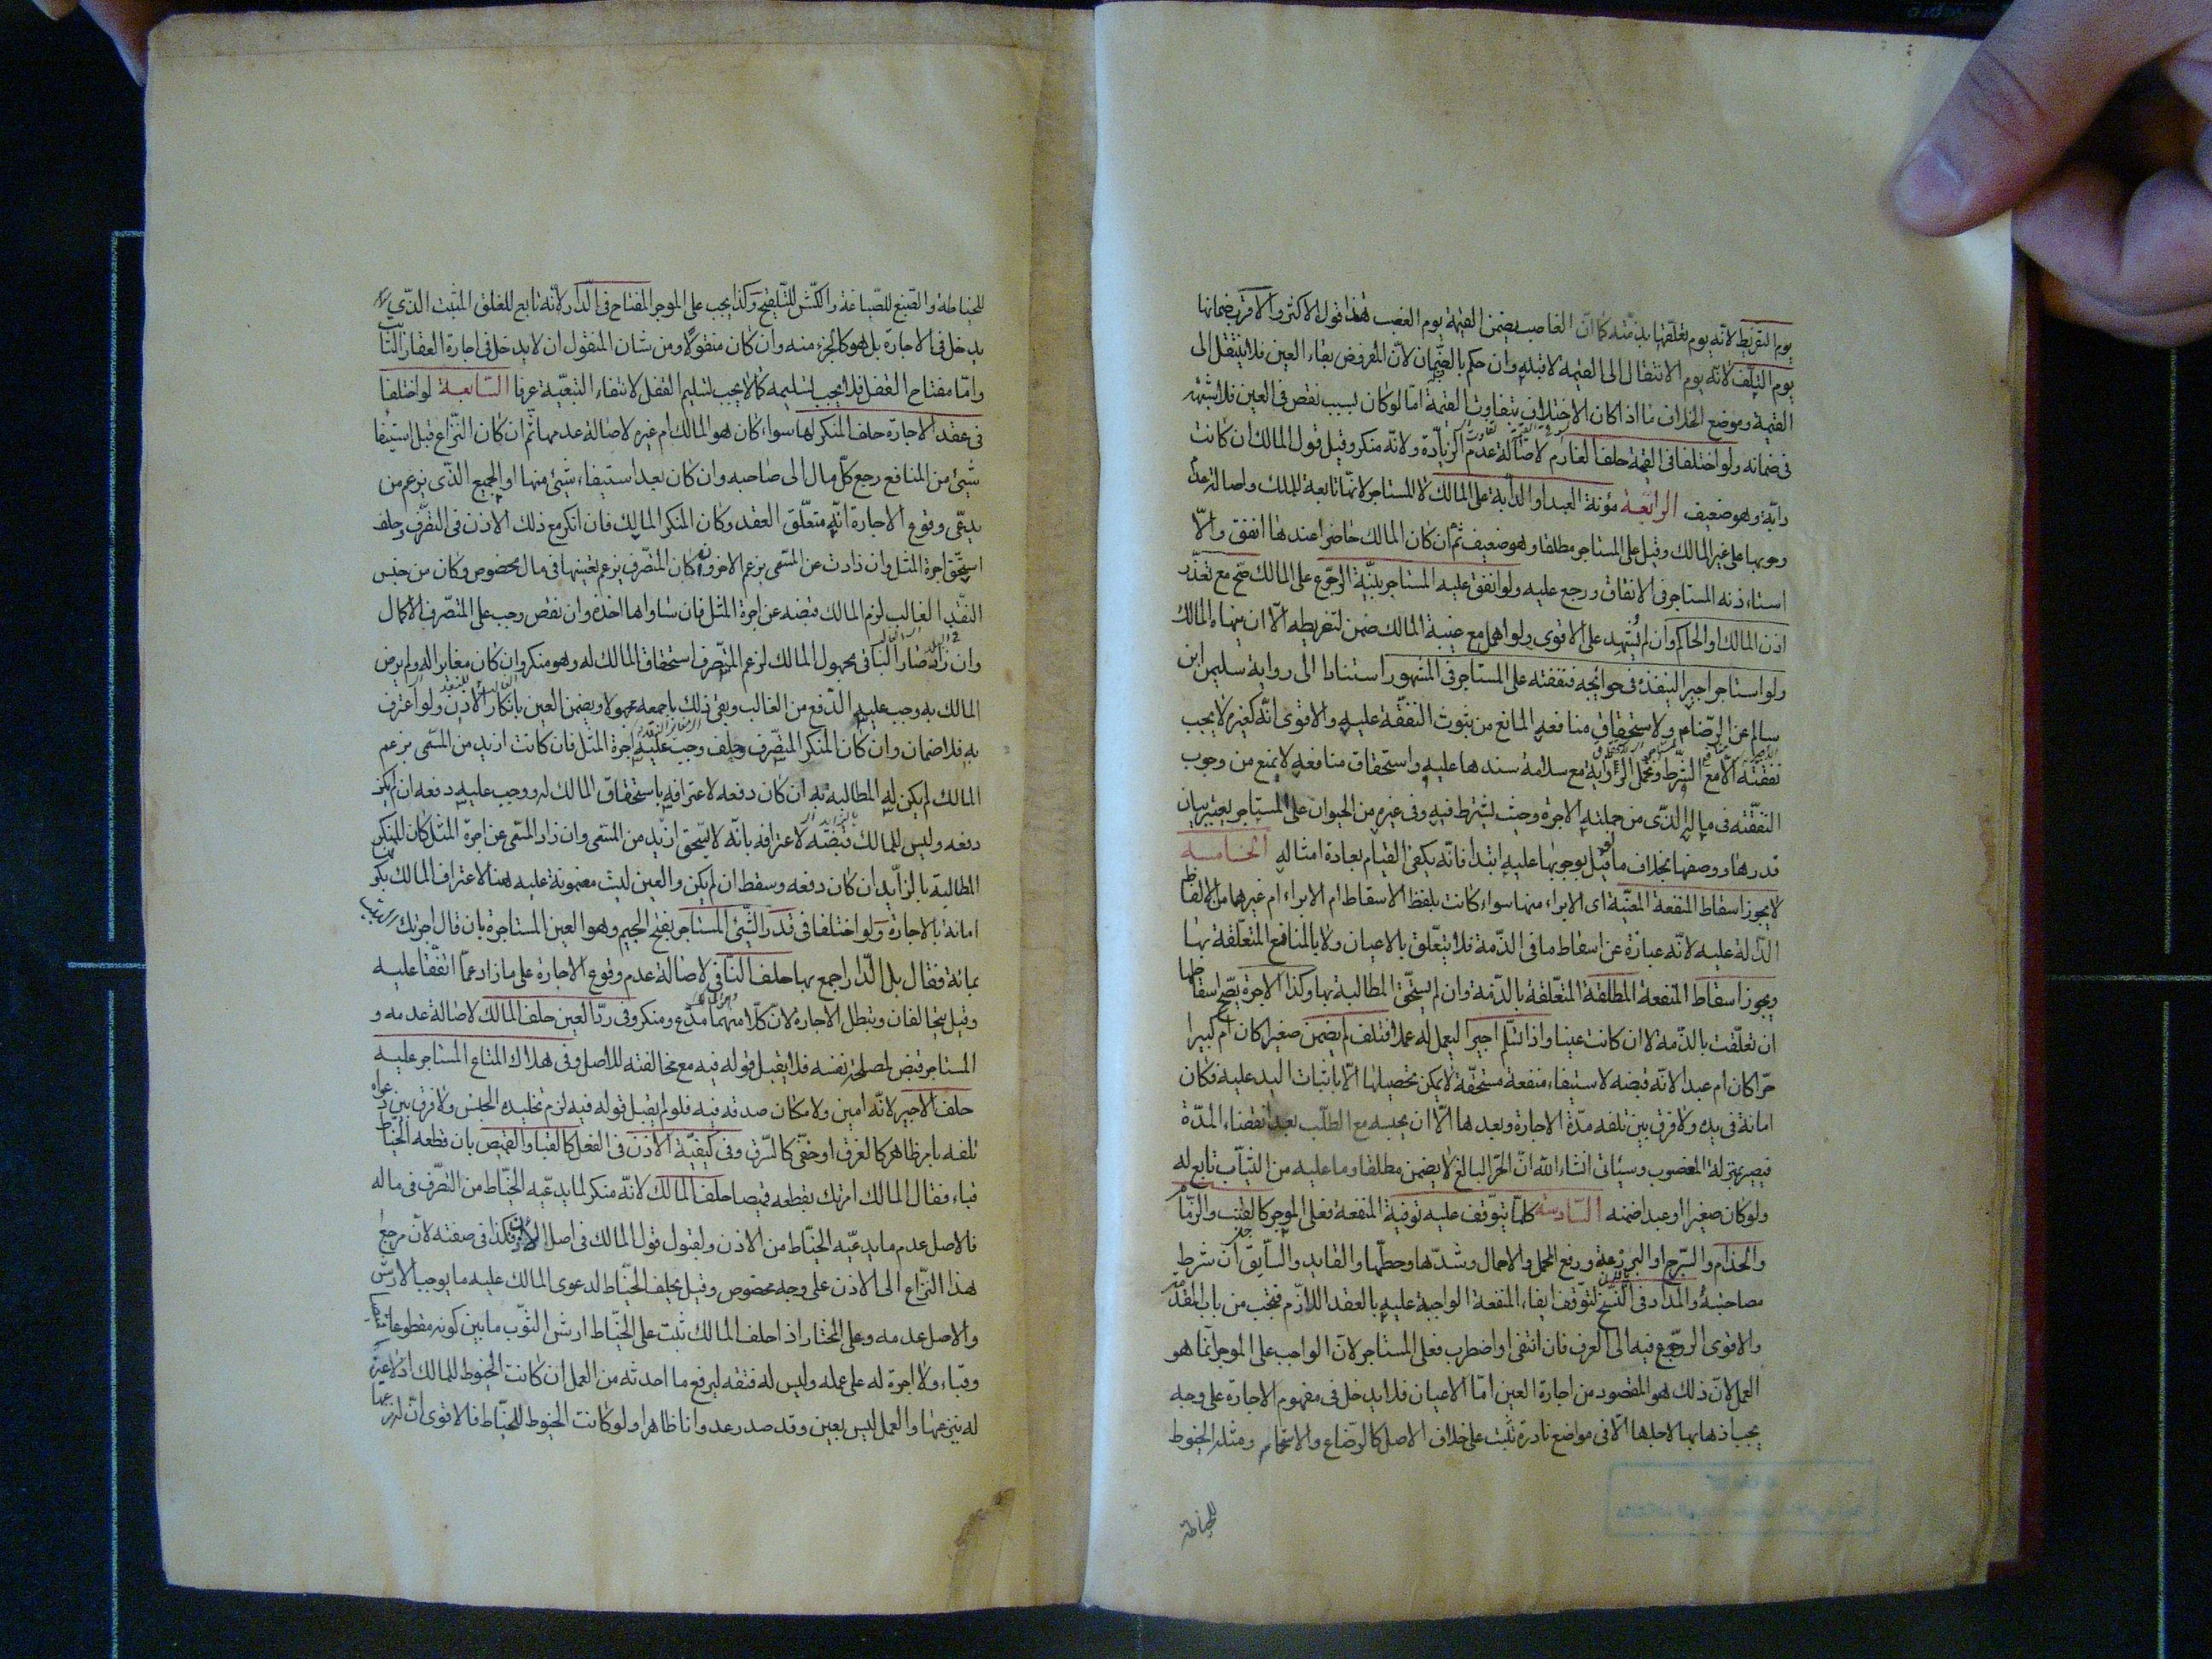 يوم التفريط لانه يوم تعلقها بذمته كما ان الغاصب يضمن القيمة يوم الغصب هذا قول الاكثر والاقرب ضمانها
يوم التلف لانه يوم الانتقال الى القيمة لا قبله وان حكم بالضمان لان المفروض بقاء العين فلا ينتقل الى
القيمة وموضع الخلاف ما اذا كان الاختلاف بتفاوت القيمة اما لو كان بسبب نقص فى العين فلا شبهة
فى ضمانه ولو اختلفا فى القيمة حلف الغارم لاصالة عدم الزيادة ولانه منكر وقيل قول المالك ان كانت
دابة وهو ضعيف الرابعة مؤنة العبد او الدابة على المالك لا المستاجر لانها تابعة للملك واصالة عدم
وجوبها على غير المالك وقيل على المستاجر مطلقا وهو ضعيف ثم ان كان المالك حاضرا عندها انفق والا
استاذنه المستاجر فى الانفاق ورجع عليه ولو انفق عليه المستاجر بنية الرجوع على المالك صح مع تعذر
اذن المالك او الحاكم وان لم يشهد على الاقوى ولو اهمل مع غيبة المالك ضمن لتفريطه الا ان ينهاه المالك
ولو استاجر اجيرا لينفذه فى حوائجه فنفقته على المستاجر فى المشهور استنادا الى رواية سليمن ابن
سالم عن الرضا عم ولاستحقاق منافعه المانع من ثبوت النفقة عليه والاقوى انه كغيره لا يجب
نفقته الا مع الشرط وتحمل الرواية مع سلامة سندها عليه واستحقاق منافعه لا يمنع من وجوب
النفقة فى ماله الذى من جملته الاجرة وحيث يشترط فيه وفى غيره من الحيوان على المستاجر يعتبر بيان
قدرها ووصفها بخلاف ما قيل بوجوبها عليه ابتدا فانه يكفى القيام بعادة امثاله الخامسة
لا يجوز اسقاط المنفعة المعينة اى الابراء منها سواء كانت بلفظ الاسقاط ام الابراء ام غيرهما من الالفاظ
الدالة عليه لانه عبارة عن اسقاط ما فى الذمة فلا يتعلق بالاعيان ولا بالمنافع المتعلقة بها
ويجوز اسقاط المنفعة المطلقة المتعلقة بالذمة وان لم يستحق المطالبة بها وكذا الاجرة يصح اسقاطها
ان تعلقت بالذمة لا ان كانت عينا واذا تسلم اجيرا ليعمل له عملا فتلف لم يضمن صغيرا كان ام كبيرا
حرا كان ام عبدا لانه قبضه لاستيفاء منفعة مستحقة لا يمكن تحصيلها الا باثبات اليد عليه فكان
امانة فى يده ولا فرق بين تلفه مدة الاجارة وبعدها الا ان يحبسه مع الطلب بعد انقضاء المدة
فيصير بمنزلة المغصوب وسياتى انشاء الله ان الحر البالغ لا يضمن مطلقا وما عليه من الثياب تابع له
ولو كان صغيرا او عبدا ضمنه السادسة كلما يتوقف عليه توفية المنفعة فعلى الموجر كالقتب والزمام
والحزام والسرج او البرذعة ورفع المحمل والاحمال وشدها وحطها والقايد والسايق ان شرط
مصاحبته والمداد فى النسخ لتوقف ايفاء المنفعة الواجبة عليه بالعقد اللازم فيجب من باب المقدمة
والاقوى الرجوع فيه الى العرف فان انتفى او اضطرب فعلى المستاجر لان الواجب على الموجر انما هو
العمل لان ذلك هو المقصود من اجارة العين اما الاعيان فلا يدخل فى مفهوم الاجارة على وجه
يجب اذهابها لاجلها الا فى مواضع نادرة تثبت على خلاف الاصل كالرضاع والاستحمام ومثله الخيوط
للخياطة
للخياطة والصبغ للصباغة والكش للتلقيح وكذا يجب على الموجر المفتاح فى الدار لانه تابع للغلق المثبت الذى
يدخل فى الاجارة بل هو كالجزء منه وان كان منقولا ومن شان المنقول ان لا يدخل فى اجارة العقار الثابت
واما مفتاح القفل فلا يجب تسليمه كما لا يجب تسليم القفل لانتفاء التبعية عرفا السابعة لو اختلفا
فى عقد الاجارة حلف المنكر لها سواء كان هو المالك ام غيره لاصالة عدمها ثم ان كان النزاع قبل استيفاء
شيئ من المنافع رجع كل مال الى صاحبه وان كان بعد استيفاء شيئ منها او الجميع الذى يزعم من
يدعى وقوع الاجارة انه متعلق العقد وكان المنكر المالك فان انكر مع ذلك الاذن فى التصرف وحلف
استحق اجرة المثل وان زادت عن المسمى بزعم الاخر وان كان المتصرف يزعم تعيينها فى مال مخصوص وكان من جنس
النقد الغالب لزم المالك قبضه عن اجرة المثل فان ساواها اخذه وان نقص وجب على المتصرف الاكمال
وان زاد صار الباقى مجهول المالك لزعم المتصرف استحقاق المالك له وهو منكر وان كان مغايرا له ولم يرض
المالك به وجب عليه الدفع من الغالب وبقى ذلك باجمعه مجهولا ويضمن العين بانكار الاذن ولو اعترف
به فلا ضمان وان كان المنكر المتصرف وحلف وجب عليه اجرة المثل فان كانت ازيد من المسمى بزعم
المالك لم يكن له المطالبة به ان كان دفعه لاعترافه باستحقاق المالك له ووجب عليه دفعه ان لم يكن
دفعه وليس للمالك قبضه لاعترافه بانه لا يستحق ازيد من المسمى وان زاد المسمى عن اجرة المثل كان للمنكر
المطالبة بالزايد ان كان دفعه وسقط ان لم يكن والعين ليست مضمونة عليه هنا لاعتراف المالك بكونها
امانة بالاجارة ولو اختلفا فى قدر الشيئ المستاجر بفتح الجيم وهو العين المستاجرة بان قال اجرتك البيت
بمائة فقال بل الدار اجمع بها حلف النافى لاصالة عدم وقوع الاجارة على ما زاد عما اتفقا عليه
وقيل يتحالفان وتبطل الاجارة لان كلا منهما مدع ومنكر وفى رد العين حلف المالك لاصالة عدمه و
المستاجر قبض لمصلحة نفسه فلا يقبل قوله فيه مع مخالفته للاصل وفى هلاك المتاع المستاجر عليه
حلف الاجير لانه امين ولامكان صدقه فيه فلو لم يقبل قوله فيه لزم تخليده الحبس ولا فرق بين دعواه
تلفه بامر ظاهر كالغرق او خفى كالسرق وفى كيفية الاذن فى الفعل كالقبا والقميص بان قطعه الخياط
قباء فقال المالك امرتك بقطعه قميصا حلف المالك لانه منكر لما يدعيه الخياط من التصرف فى ماله
فالاصل عدم ما يدعيه الخياط من الاذن ولقبول قول المالك فى اصل الاذن فكذا فى صفته لان مرجع
هذا النزاع الى الاذن على وجه مخصوص وقيل يحلف الخياط لدعوى المالك عليه ما يوجب الارش
والاصل عدمه وعلى المختار اذا حلف المالك ثبت على الخياط ارش الثوب ما بين كونه مقطوعا قميصا
وقباء ولا اجرة له على عمله وليس له فتقه ليرفع ما احدثه من العمل ان كانت الخيوط للمالك اذ لا عين
له ينزعها والعمل ليس بعين وقد صدر عدوانا ظاهرا ولو كانت الخيوط للخياط فالاقوى ان له نزعها